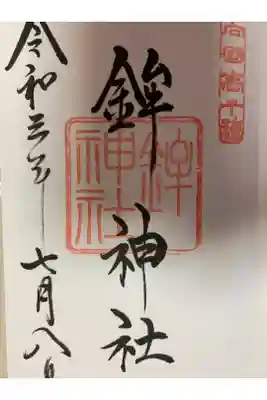 鉾神社
鉾神社
令和三年七月八日